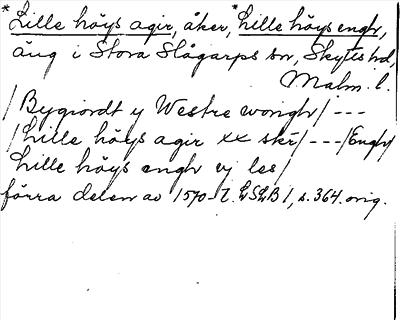 *Lille höys agir, åker, *Lille höys engh,
äng i Stora Slågarps sn, Skytts hd,
Malm. l.
/Bygiordt y Westre wongh/ ---
/Lille höys agir xx skr/ --- /Engh/
Lille höys engh vj les/
förra delen av 1570-t. LSLB 1, s. 364. orig.